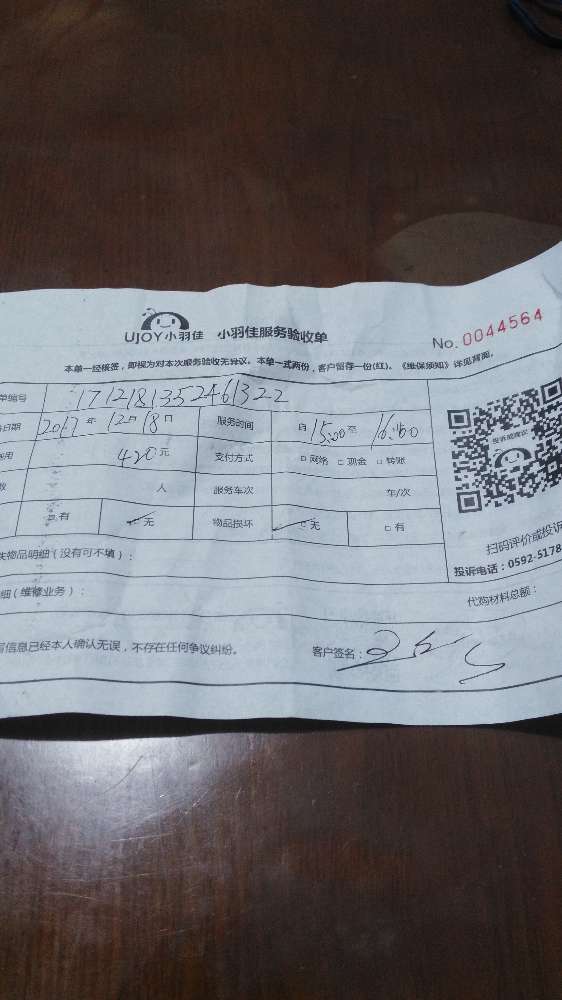 UJOY小羽佳 小羽佳服务验收单
No. 0044564
本单一经核签，即视为对本次服务验收无异议。本单一式两份，客户留存一份(红)。《维保须知》详见背面。
单编号 1712181352461322
日期 2017年 12月 18日 服务时间 自 15:00 至 16:60
用 420元 支付方式 □ 网络 □ 现金 □ 转账
数 人 服务车次 车/次
□ 有 □ 无 物品损坏 □ 无 □ 有
投诉或建议
扫码评价或投诉
投诉电话：0592-5178
失物品明细（没有可不填）：
细（维修业务）： 代购材料总额：
写信息已经本人确认无误，不存在任何争议纠纷。 客户签名：